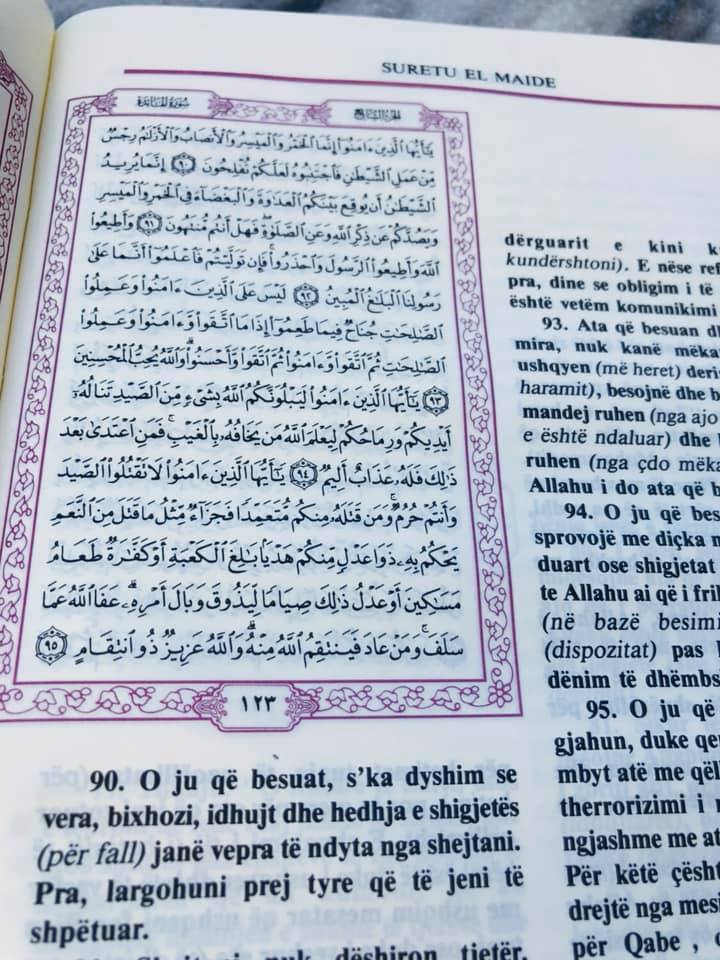 SURETU EL MAIDE
سورة المائدة
الجزء السابع
يَٰٓأَيُّهَا ٱلَّذِينَ ءَامَنُوٓا۟ إِنَّمَا ٱلْخَمْرُ وَٱلْمَيْسِرُ وَٱلْأَنصَابُ وَٱلْأَزْلَٰمُ رِجْسٌ
مِّنْ عَمَلِ ٱلشَّيْطَٰنِ فَٱجْتَنِبُوهُ لَعَلَّكُمْ تُفْلِحُونَ ٩٠ إِنَّمَا يُرِيدُ
ٱلشَّيْطَٰنُ أَن يُوقِعَ بَيْنَكُمُ ٱلْعَدَٰوَةَ وَٱلْبَغْضَآءَ فِى ٱلْخَمْرِ وَٱلْمَيْسِرِ
وَيَصُدَّكُمْ عَن ذِكْرِ ٱللَّهِ وَعَنِ ٱلصَّلَوٰةِ فَهَلْ أَنتُم مُّنتَهُونَ ٩١ وَأَطِيعُوا۟
ٱللَّهَ وَأَطِيعُوا۟ ٱلرَّسُولَ وَٱحْذَرُوا۟ فَإِن تَوَلَّيْتُمْ فَٱعْلَمُوٓا۟ أَنَّمَا عَلَىٰ
رَسُولِنَا ٱلْبَلَٰغُ ٱلْمُبِينُ ٩٢ لَيْسَ عَلَى ٱلَّذِينَ ءَامَنُوا۟ وَعَمِلُوا۟
ٱلصَّٰلِحَٰتِ جُنَاحٌ فِيمَا طَعِمُوٓا۟ إِذَا مَا ٱتَّقَوا۟ وَّءَامَنُوا۟ وَعَمِلُوا۟
ٱلصَّٰلِحَٰتِ ثُمَّ ٱتَّقَوا۟ وَّءَامَنُوا۟ ثُمَّ ٱتَّقَوا۟ وَّأَحْسَنُوا۟ وَٱللَّهُ يُحِبُّ ٱلْمُحْسِنِينَ
٩٣ يَٰٓأَيُّهَا ٱلَّذِينَ ءَامَنُوا۟ لَيَبْلُوَنَّكُمُ ٱللَّهُ بِشَىْءٍ مِّنَ ٱلصَّيْدِ تَنَالُهُۥٓ
أَيْدِيكُمْ وَرِمَاحُكُمْ لِيَعْلَمَ ٱللَّهُ مَن يَخَافُهُۥ بِٱلْغَيْبِ فَمَنِ ٱعْتَدَىٰ بَعْدَ
ذَٰلِكَ فَلَهُۥ عَذَابٌ أَلِيمٌ ٩٤ يَٰٓأَيُّهَا ٱلَّذِينَ ءَامَنُوا۟ لَا تَقْتُلُوا۟ ٱلصَّيْدَ
وَأَنتُمْ حُرُمٌ وَمَن قَتَلَهُۥ مِنكُم مُّتَعَمِّدًا فَجَزَآءٌ مِّثْلُ مَا قَتَلَ مِنَ ٱلنَّعَمِ
يَحْكُمُ بِهِۦ ذَوَا عَدْلٍ مِّنكُمْ هَدْيًۢا بَٰلِغَ ٱلْكَعْبَةِ أَوْ كَفَّٰرَةٌ طَعَامُ
مَسَٰكِينَ أَوْ عَدْلُ ذَٰلِكَ صِيَامًا لِّيَذُوقَ وَبَالَ أَمْرِهِۦ عَفَا ٱللَّهُ عَمَّا
سَلَفَ وَمَنْ عَادَ فَيَنتَقِمُ ٱللَّهُ مِنْهُ وَٱللَّهُ عَزِيزٌ ذُو ٱنتِقَامٍ ٩٥
١٢٣
90. O ju që besuat, s'ka dyshim se
vera, bixhozi, idhujt dhe hedhja e shigjetës
(për fall) janë vepra të ndyta nga shejtani.
Pra, largohuni prej tyre që të jeni të
shpëtuar.
nuk dëshiron tjetër,
dërguarit e kini
kundërshtoni). E nëse
pra, dine se obligim i të
është vetëm komunikimi
93. Ata që besuan
mira, nuk kanë
ushqyen (më heret)
haramit), besojnë dhe
mandej ruhen (nga ajo
e është ndaluar) dhe
ruhen (nga çdo
Allahu i do ata që
94. O ju që
sprovojë me diçka
duart ose shigjetat
te Allahu ai që i
(në bazë besimi
(dispozitat) pas
dënim të
95. O ju që
gjahun, duke
mbyt atë me
therrorizimi i
ngjashme me
Për këtë
drejtë nga
për Qabe,